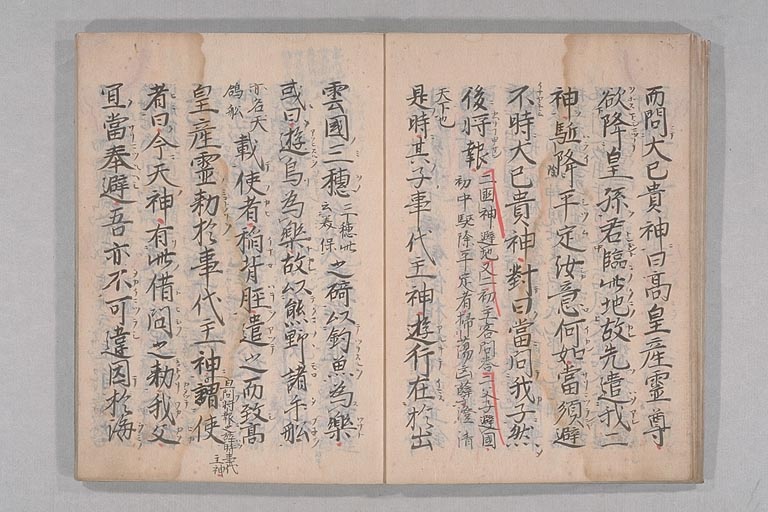 而問大己貴神曰高皇産靈尊
欲降皇孫君臨此地故先遣我二
神駈降平定汝意何如當須避
不時大己貴神對曰當問我子然
後將報
二神避地
初主客問答
父子避國
初中駈除平定者掃蕩
天下也
是時其子事代主神遊行在於出
雲國三穗
三穗此云美保
之碕以釣魚為樂
或曰遊鳥為樂故以熊野諸手舩
亦名天鴿舩
載使者稲背脛遣之而致高
皇産靈勅於事代主神
且問將報之辞時事代主神
謂使
者曰今天神有此借問之勅我父
宜當奉避吾亦不可違因於海